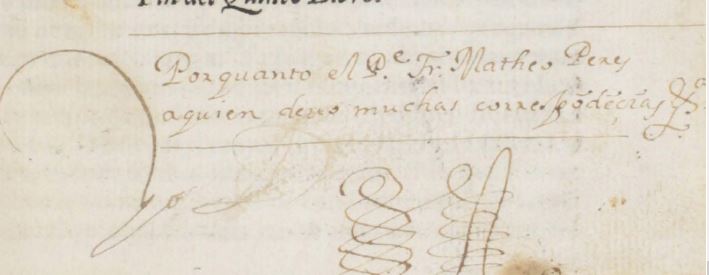 Fin del Quinto Libro.
Porquanto el P.e Fr. Matheo Peres
aquien deuo muchas correspõdẽcias